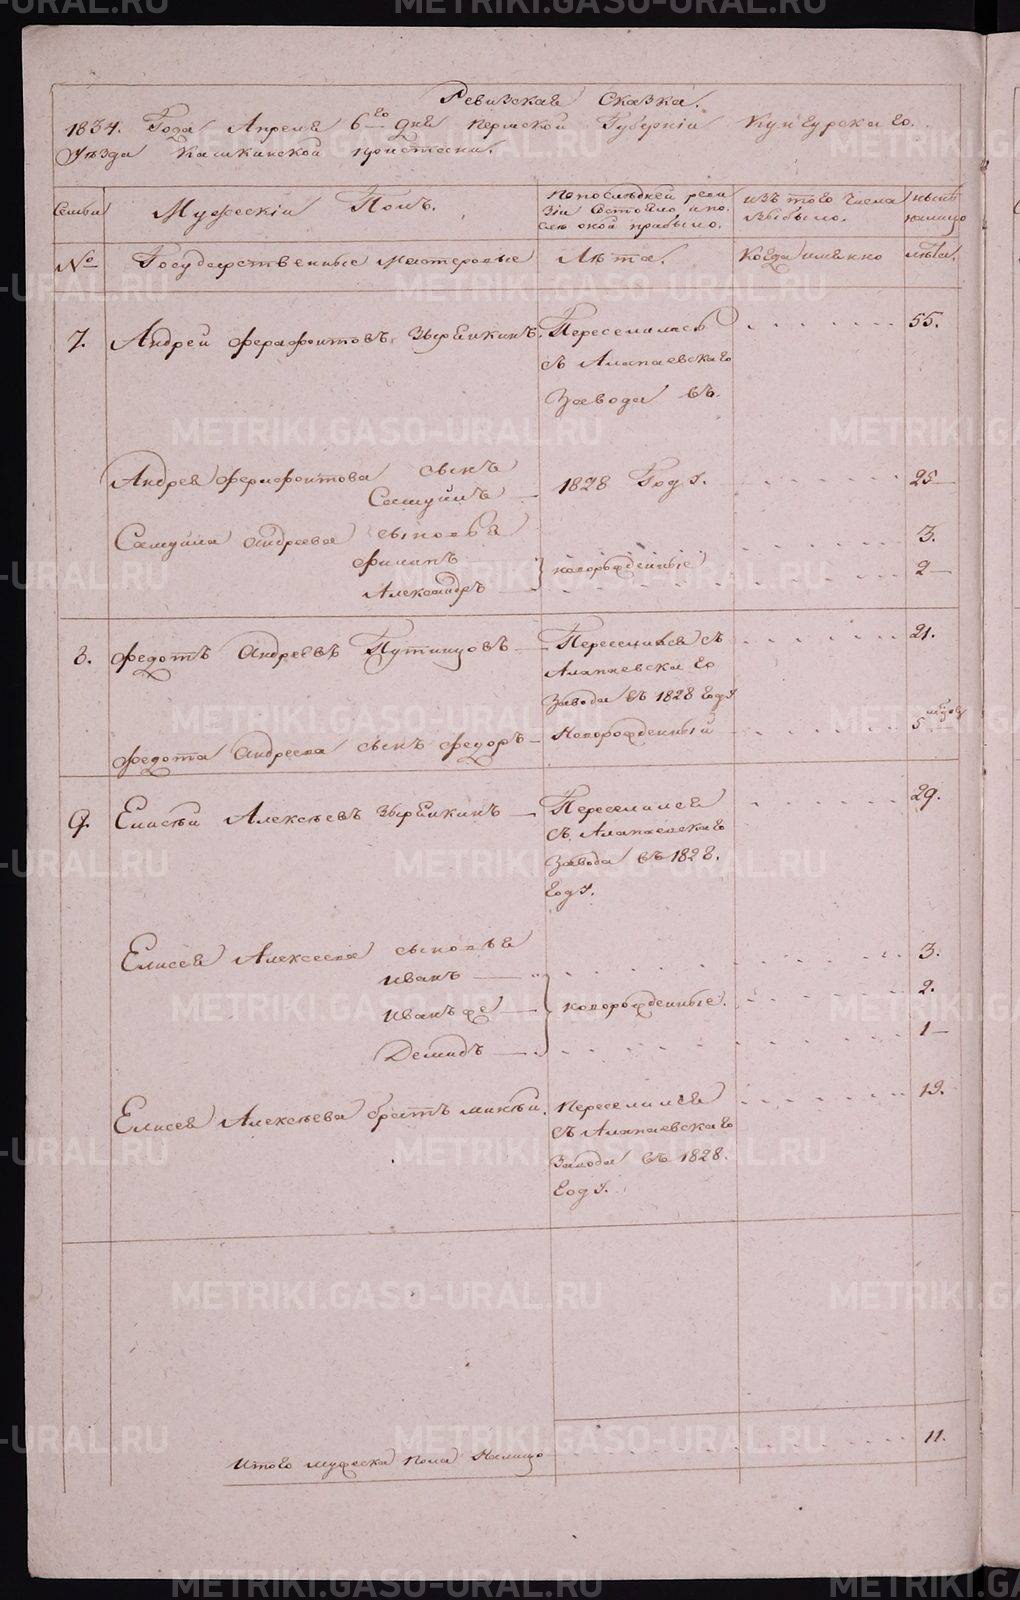 Ревизская Сказка.
1834. Года Апреля 6го дня Пермской Губернiи Кунгурскаго.
Уѣзда Кашкинской пристани.
Семьи
Мужескiй Полъ.
По послѣдней реви
зiи Состояло и по
слѣ оной прибыло.
изъ того числа
Выбыло.
нынѣ
налицо
№
Государственные мастеровые
Лѣта.
Когда именно
лѣта.
7. Андрей Ферафонтовъ Зырянкинъ. Переселился 55.
съ Алапаевскаго
Завода въ
Андрея Ферафонтова сынъ
Самуилъ — 1828 Году. 25
Самуила Андреева сыновья 3.
Филипъ новорожденные
Александръ 2
8. Федотъ Андреевъ Путинцовъ — Переселился съ 21.
Алапаевскаго
Завода въ 1828 году
Федота Андреева сынъ Федоръ — Новорожденный 5
9. Елисѣй Алексѣевъ Зырянкинъ — Переселился 29.
съ Алапаевскаго
Завода въ 1828.
году.
Елисея Алексеева сыновья 3.
Иванъ —
Иванъ же — новорожденные. 2.
Демидъ — 1
Елисея Алексѣева братъ Микѣй. Переселился 19.
съ Алапаевскаго
Завода въ 1828.
году.
Итого мужеска пола Налицо 11.
METRIKI.GASO-URAL.RU